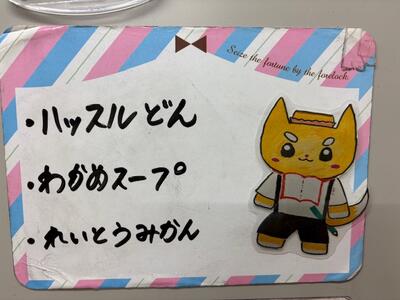 Seize the fortune by the forelock.
・ハッスルどん
・わかめスープ
・れいとうみかん